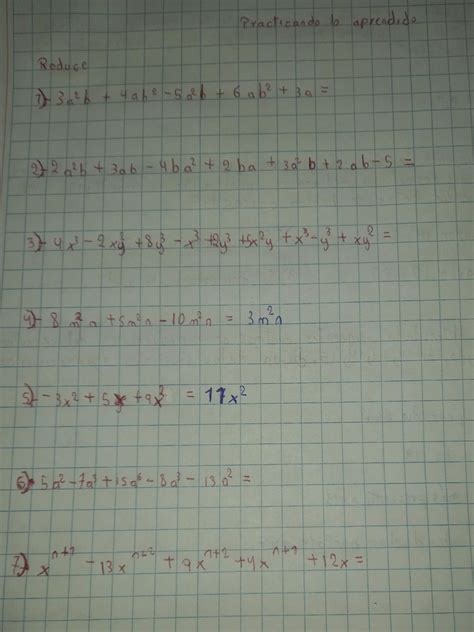 Practicando lo aprendido
Reduce
1)- 3a²b + 4ab² - 5a²b + 6ab² + 3a =
2)- 2a²b + 3ab - 4ba² + 2ba + 3a²b + 2ab - 5 =
3)- 4x³ - 2xy² + 8y³ - x³ + 2y³ + 5x²y + x³ - y³ + xy² =
4)- 8m²n + 5m²n - 10m²n = 3m²n
5)- -3x² + 5x + 9x² = 11x²
6)- 5a² - 7a³ + 15a⁶ - 8a³ - 13a² =
7)- xⁿ⁺² - 13xⁿ⁺² + 9xⁿ⁺² + 4xⁿ⁺¹ + 12x =